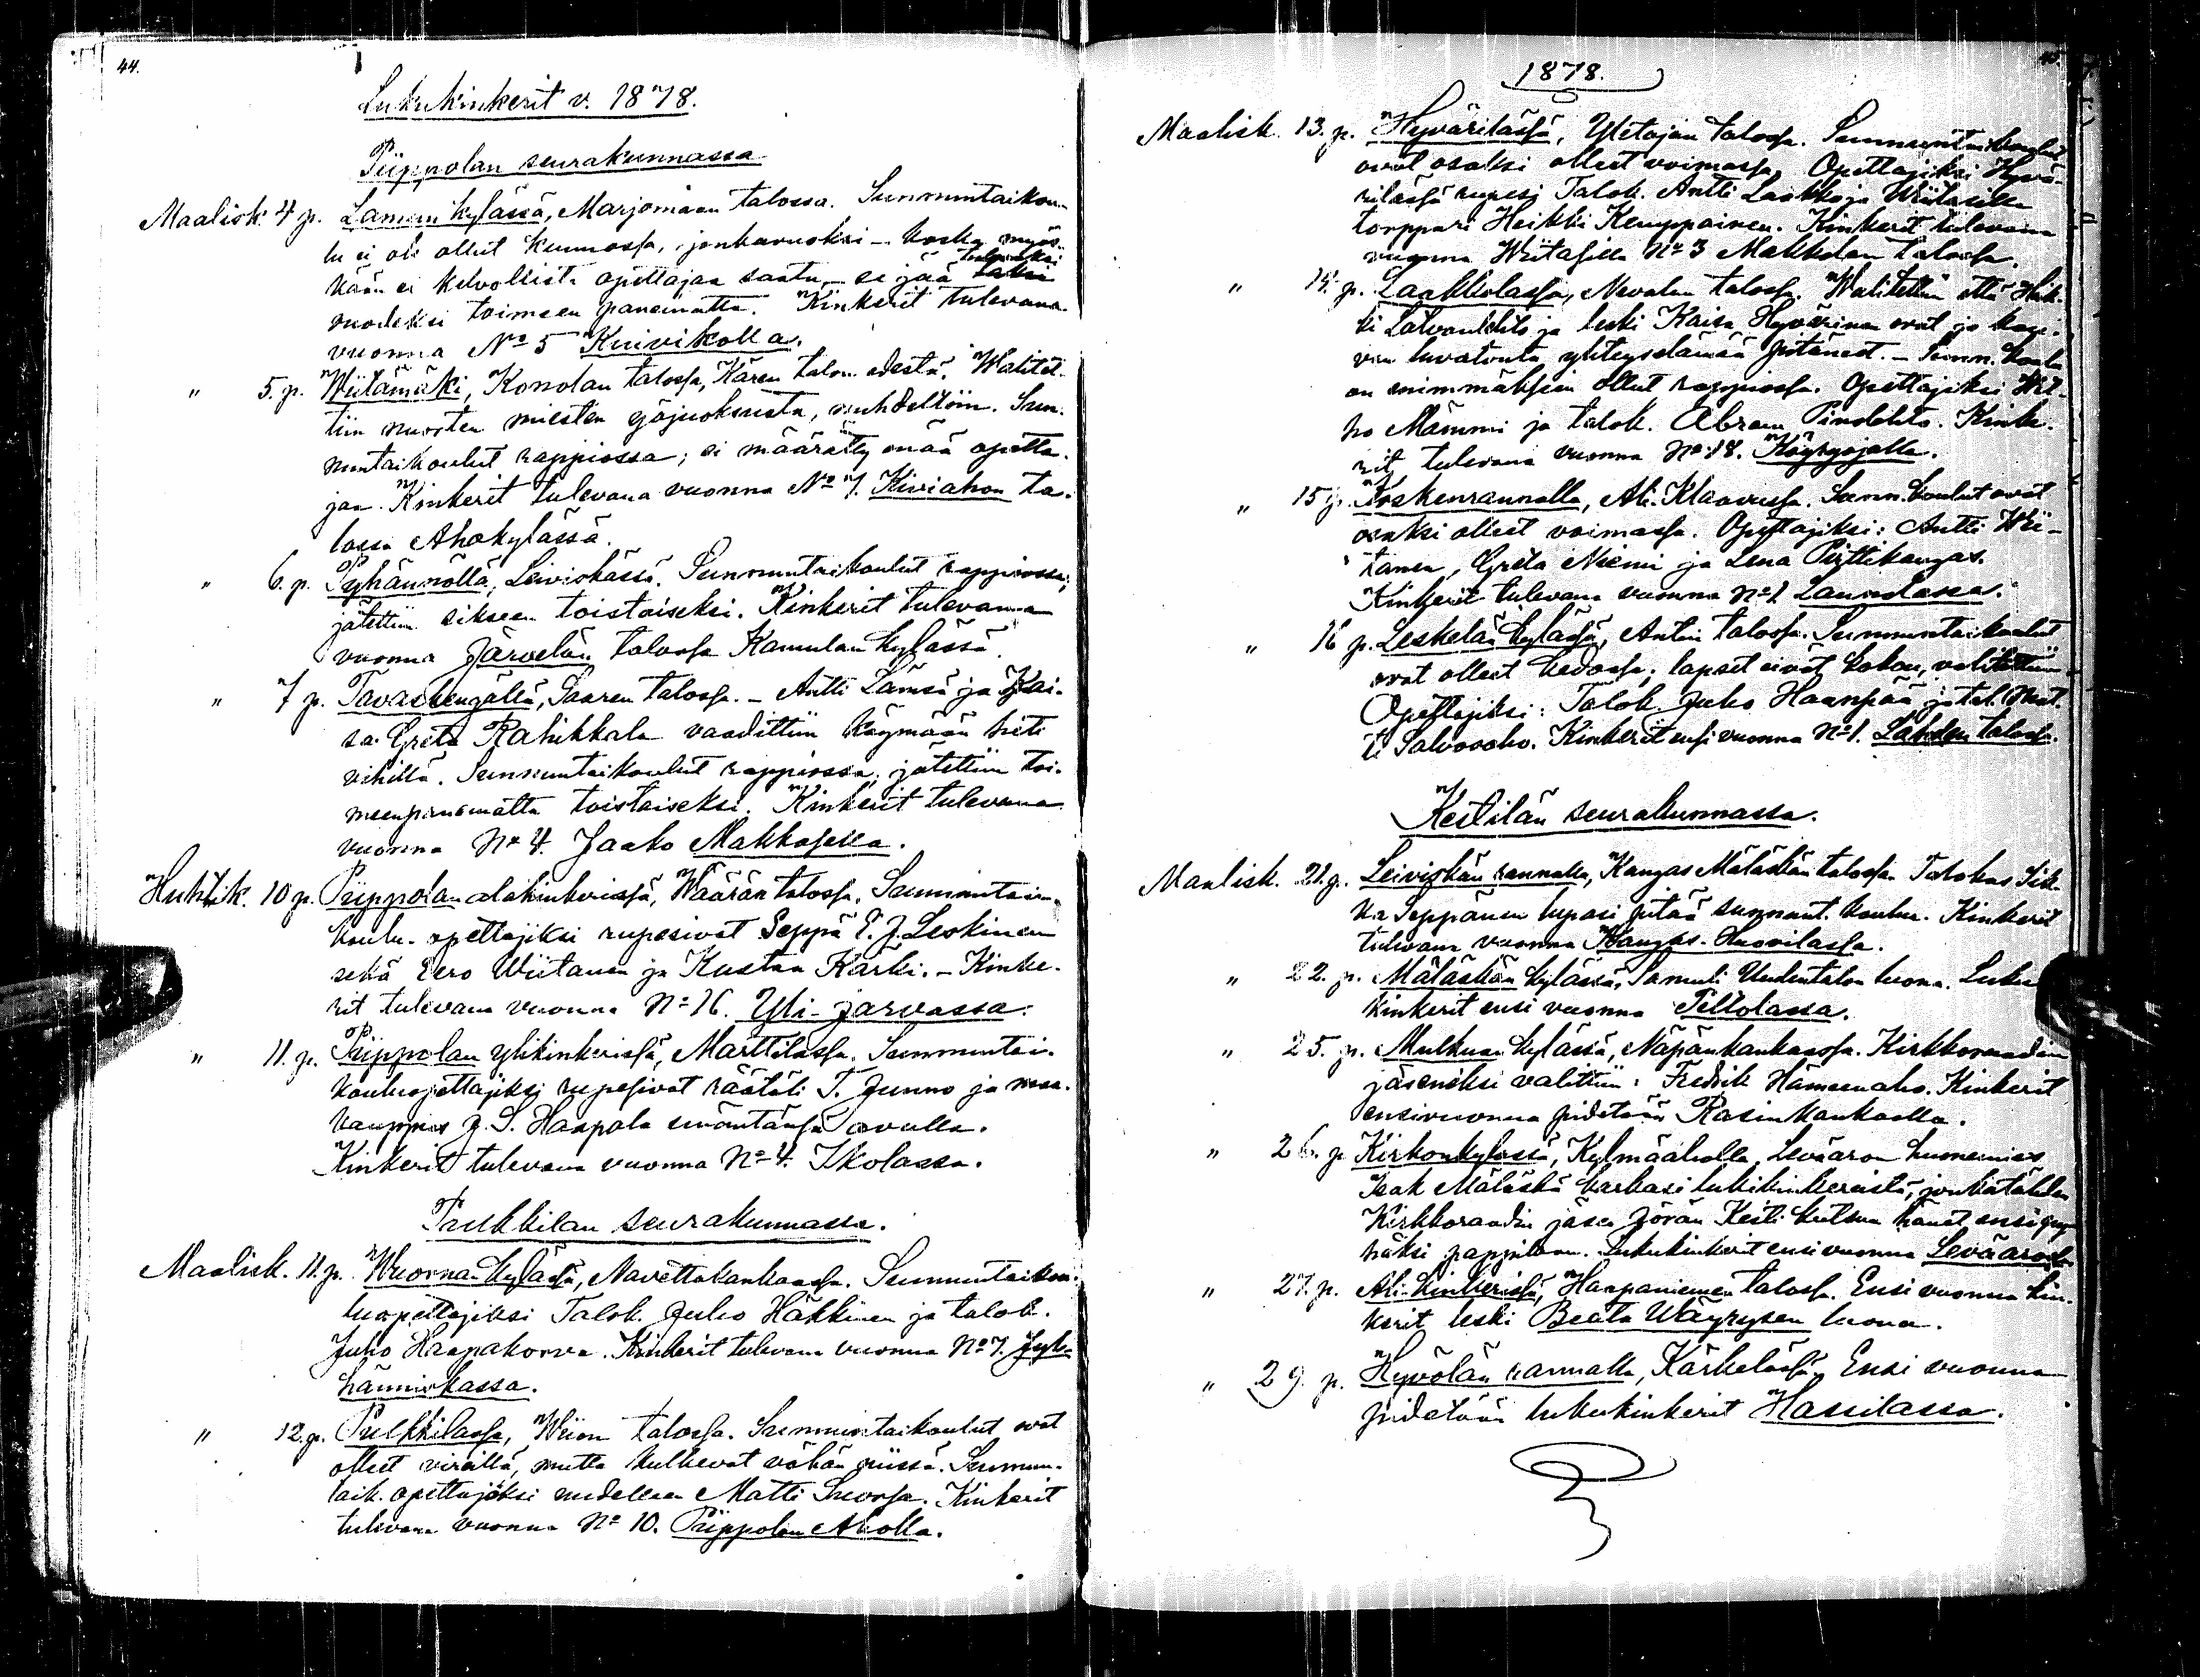 44.
Lukukinkerit v. 1878.
Piippolan seurakunnassa
Maalisk. 4 p. Lamun kylässä, Marjomaan talossa. Sunnuntaikou-
lu ei ole ollut kunnossa, jonkavuoksi – koska myös-
kään ei kelvollista opettajaa saatu, – se jää
vuodeksi toimeen panematta. Kinkerit tulevana
vuonna No 5 Kuivikolla.
" 5. p. Wiitämäki, Konolan talossa, Kären talon edestä. Walitet-
tiin nuorten miesten yöjuoksusta, nuhdeltiin. Sun-
nuntaikoulut rappiossa; ei määrätty enää opetta-
jaa. Kinkerit tulevana vuonna No 7. Kiviahon ta-
lossa Ahokylässä.
" 6. p. Pyhännöllä, Leiviskässä. Sunnuntaikoulut rappiossa;
jätettiin sikseen toistaiseksi. Kinkerit tulevana
vuonna Järvelän talossa Kamulan kylässä.
" 7 p. Tavastkengällä, Saaren talossa. – Antti Lämsä ja Kai-
sa Greta Rahikkala vaadittiin käymään heti
vihillä. Sunnuntaikoulut rappiossa; jätettiin toi-
meenpanematta toistaiseksi. Kinkerit tulevana
vuonna No 4. Jaako Makkosella.
Huhtik. 10 p. Piippolan alakinkerissä, Wäärän talossa. Sunnuntai-
koulu- opettajiksi rupesivat Seppä E. J. Leskinen
sekä Eero Wiitanen ja Kustaa Kärki. – Kinke-
rit tulevana vuonna No 16. Yli-Jarvassa.
" 11. p. Piippolan ylikinkerissä, Marttilassa. Sunnuntai-
kouluopettajiksi rupesivat räätäli T. Junno ja maa-
kauppias J. S. Haapala avulla.
Kinkerit tulevana vuonna No 4. Ikolassa.
Pulkkilan seurakunnassa.
Maalisk. 11. p. Wuornan kylässä, Navettakankaassa. Sunnuntaikou-
luopettajiksi Talok. Juho Häkkinen ja talok.
Juho Haapakorva. Kinkerit tulevana vuonna No 7. Jyl-
hänniskassa.
" 12. p. Pulkkilassa, Wiion talossa. Sunnuntaikoulut ovat
olleet vireillä, mutta kulkevat vähän niissä. Sunnun-
taik. opettajaksi uudelleen Matti Suorsa. Kinkerit
tulevana vuonna No 10. Piippolan Aholla.
1878.
Maalisk. 13. p. Hyvärilässä, Yletojan talossa. Sunnuntaikoulut
ovat osaksi olleet voimassa. Opettajiksi Hyvä-
rilässä rupesi Talok. Antti Laakko ja Wiitasilla
torppari Heikki Kemppainen. Kinkerit tulevana
vuonna Wiitasilla No 3 Makkolan talossa.
" 14. p. Laakkolassa, Nevalan talossa. Walitettiin että Heik-
ki Latvanlehto ja leski Kaisa Hyvärinen ovat jo kau-
van luvatonta yhteyselämää pitäneet. – Sunn. koulu
on enimmäksein ollut rappiossa. Opettajiksi Wil-
ho Mämmi ja talok. Abram Pirolehto. Kinke-
rit tulevana vuonna No 18. Köyryojalla.
" 15 p. Koskenrannalla, Ali-Klaavussa. Sunn. koulut ovat
osaksi olleet voimassa. Opettajiksi: Antti Wii-
tanen, Greta Niemi ja Lena Pirttikangas.
Kinkerit tulevana vuonna No 1 Laurolassa.
" 16 p. Leskelän kylässä, Antin talossa. Sunnuntaikoulut
ovat olleet hedossa; lapset eivät kokou, valitettiin
Opettajiksi: Talok. Juho Haanpää ja tal. Mat-
ti Salvosoho. Kinkerit ensi vuonna No 1. Lahden talossa.
Kestilän seurakunnassa.
Maalisk. 21. p. Leiviskän rannalla, Kangas Mäläskän talossa. Talokas Sik-
ka Seppänen lupasi pitää sunnunt. koulua. Kinkerit
tulevana vuonna Kangas-Huovilassa.
" 22. p. Mäläskän kylässä, Samuli Uudentalon luona. Luku
kinkerit ensi vuonna Peltolassa.
" 25. p. Mulkuan kylässä, Näpänkankaassa. Kirkkoraadin
jäseneksi valittiin: Fredrik Hämeenaho. Kinkerit
ensivuonna pidetään Rasinkankaalla.
" 26. p Kirkonkylässä, Kylmääholla. Levääron huonemies
Isak Mäläskä karkasi lukukinkereistä, jonkatähden
Kirkkoraadin jäsen Jöran Kesti kutsuu hänet ensi pyy-
häksi pappilaan. Lukukinkerit ensi vuonna Leväarossa
" 27. p. Ali-kinkerissä, Haapaniemen talossa. Ensi vuonna kin-
kerit leski Beata Wäyrysen luona.
" 29. p. Hyvölän rannalla, Kärkelässä. Ensi vuonna
pidetään lukukinkerit Hassilassa.